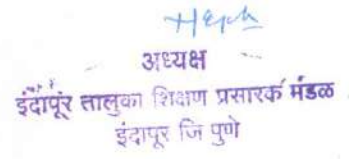 अध्यक्ष
इंदापूर तालुका शिक्षण प्रसारक मंडळ
इंदापूर जि पुणे